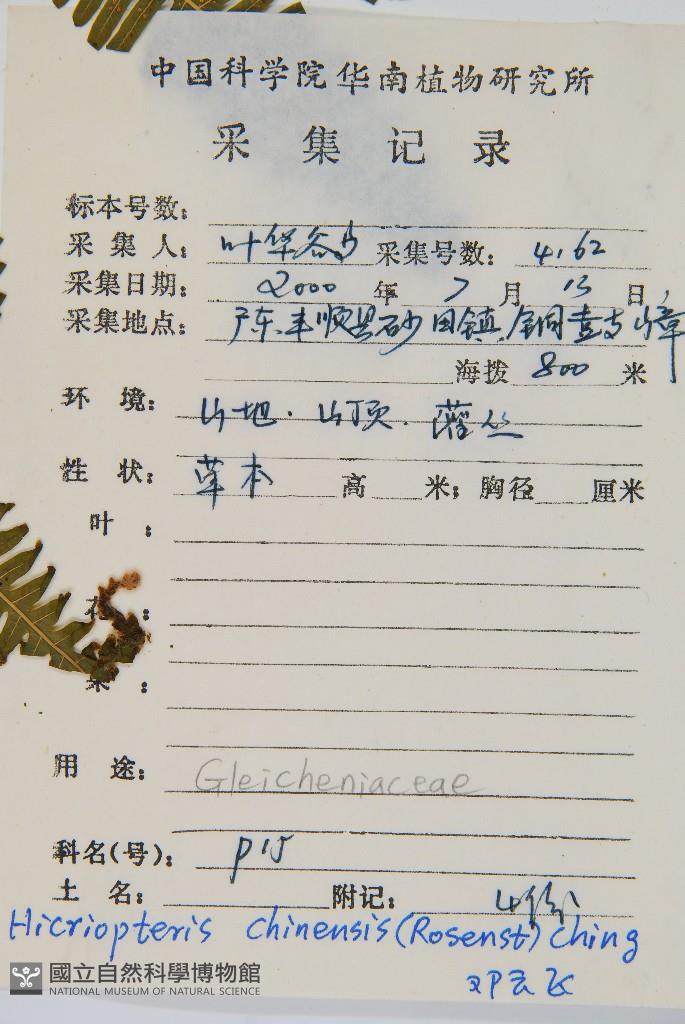 中国科学院华南植物研究所
采集记录
标本号数：
采集人：叶华谷 采集号数：4162
采集日期：2000年7月13日，
采集地点：广东.丰顺县砂田镇.铜壶支嶂
海拨 800 米
环境：山地.山顶.灌丛
性状：草本 高 米；胸径 厘米
叶：
花：
果：
用途：Gleicheniaceae
科名(号)：P15
土名： 附记：4份
Hicriopteris chinensis (Rosenst) Ching
邓云飞
國立自然科學博物館
NATIONAL MUSEUM OF NATURAL SCIENCE